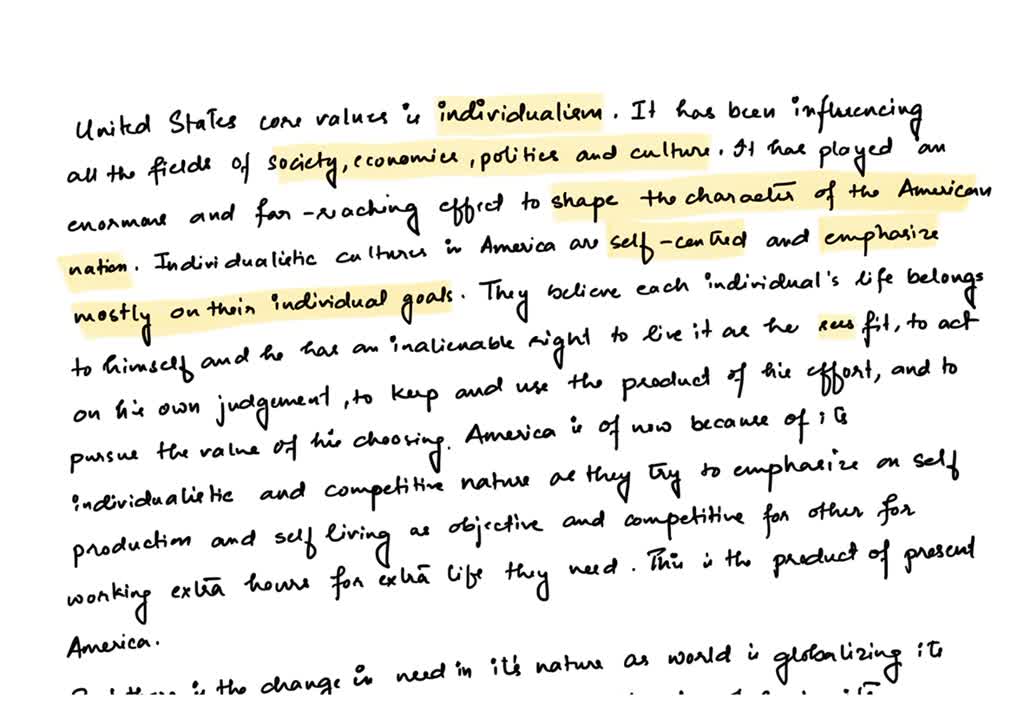 United States core values is individualism. It has been influencing
all the fields of society, economics, politics and culture. It has played an
enormous and far-reaching effect to shape the character of the American
nation. Individualistic cultures in America are self-centred and emphasize
mostly on their individual goals. They believe each individual's life belongs
to himself and he has an inalienable right to live it as he sees fit, to act
on his own judgement, to keep and use the product of his effort, and to
pursue the value of his choosing. America is of now because of its
individualistic and competitive nature as they try to emphasize on self
production and self living as objective and competitive for other for
working extra hours for extra life they need. This is the product of present
America.
there is the change in need in it's nature as world is globalizing its